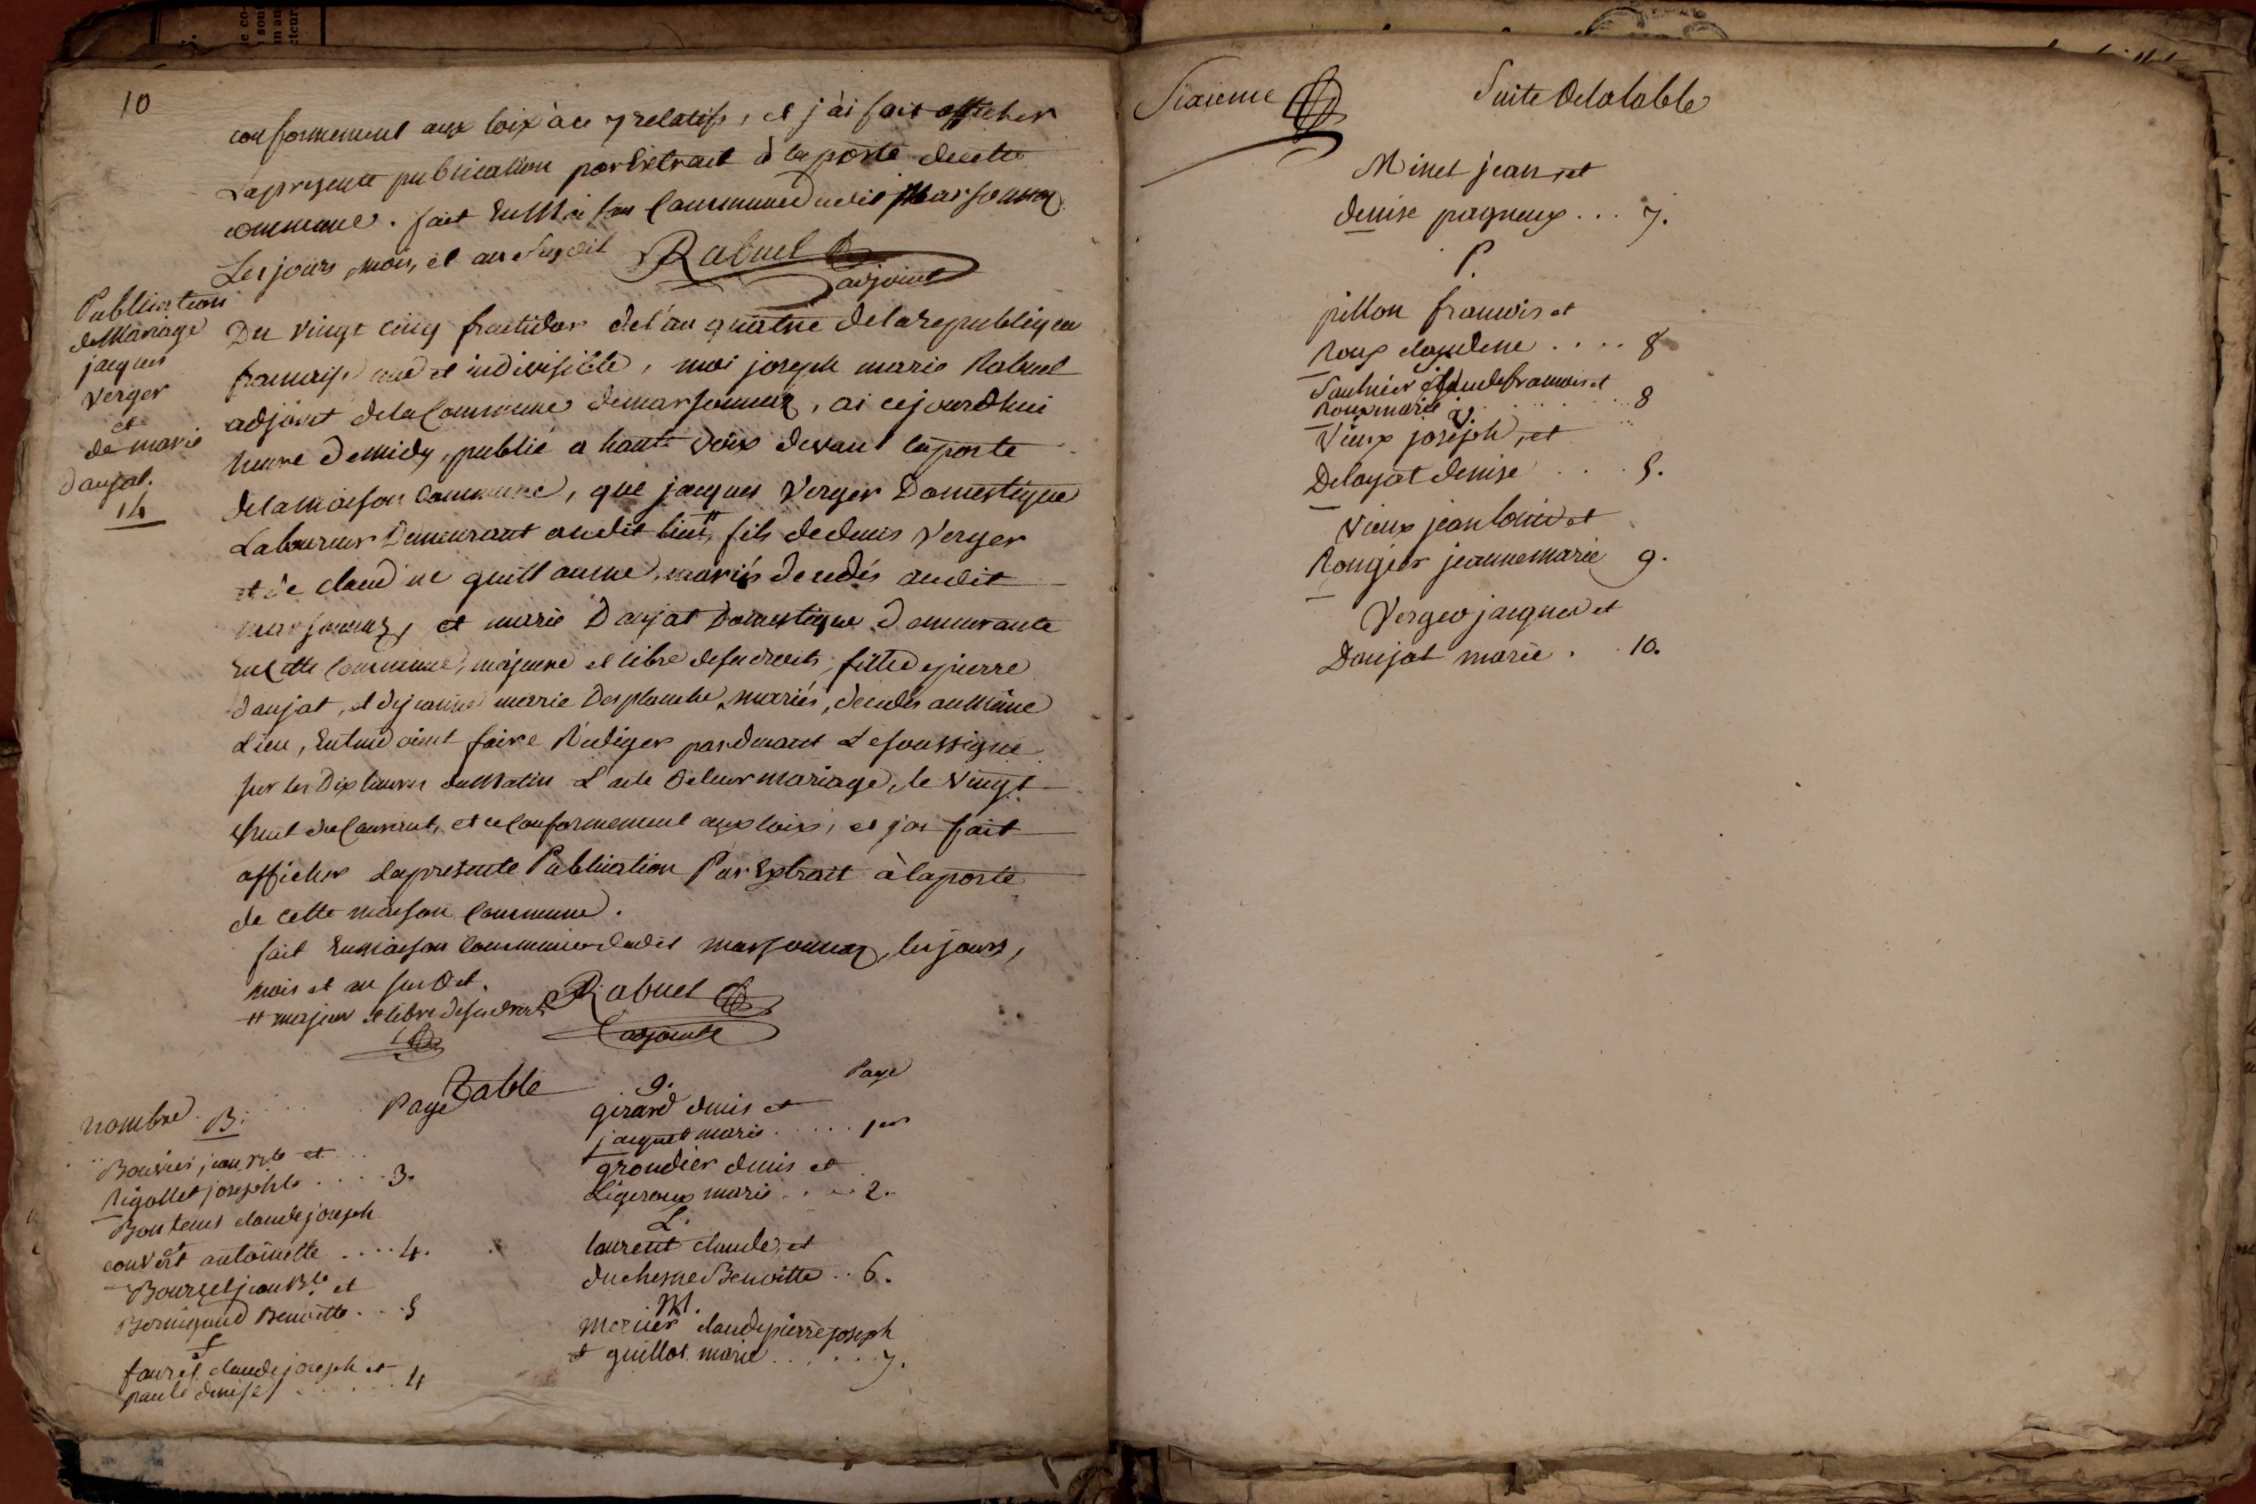 10
conformement aux loix à ce y relatifs, et j'ai fait afficher
La presente publication par Extrait à la porte de cette
commune. fait En Maison Commune dudit Marsonnaz
Les jours, mois, et an susdit Rabuel
adjoint
Publication
de Mariage
jacques
Verger
et
de marie
daujat.
14
Du vingt cinq fructidor de l'an quatre de la republique
francaise une et indivisible, moi joseph marie Rabuel
adjoint de la Commune de marsonnaz, ai cejourdhui
heure de midy, publié a haute voix devant la porte
de la maison Commune, que jacques Verger Domestique
Laboureur Demeurant audit lieu, # fils de denis Verger
et de claudine guillaume, mariés decedés audit
marsonnaz, et marie Daujat Domestique Demeurante
En Cette Commune, majeure et libre de ses droits, fille de pierre
daujat, et de jeanne marie Desplanche, mariés, decedés au même
Lieu, Entendoient faire Rediger pardevant Le soussigné
sur les Dix heures du Matin L'acte de leur mariage, le vingt
huit du Courant, et ce Conformement aux loix, et j'ai fait
afficher La presente Publication Par Extrait à la porte
de cette maison Commune.
fait En maison Commune dudit marsonnaz, les jours,
mois et an susdit.
# majeur et libre de ses droits
Rabuel
adjoint
Table
nombre B. Page
Bouvier jean Bte et
Rigollet josephte .... 3.
Bontems claude joseph
et
convert antoinette .... 4.
Bourcet jean Bte et
Bernigaud Benoitte ... 5
f
fauret claude joseph et
paule denise ...... 4
g. Page
girard denis et
jacquet marie ..... 1er
grondier denis et
Ligeroux marie .... 2.
L.
laurent claude, et
duchesne Benoitte .. 6.
M.
mercier claude pierre joseph
et guillot marie ...... 7.
Sixieme
Suite de la table
Minet jean, et
denise pagneux ... 7.
P.
pillon francois et
Roux claudine .... 8
Saulnier claude francois et
Roux marie ..... 8
V.
Vieux joseph, et
Delayat denise .... 5.
Vieux jean louis et
Rongier jeanne marie 9.
Verger jacques et
Daujat marie . . 10.